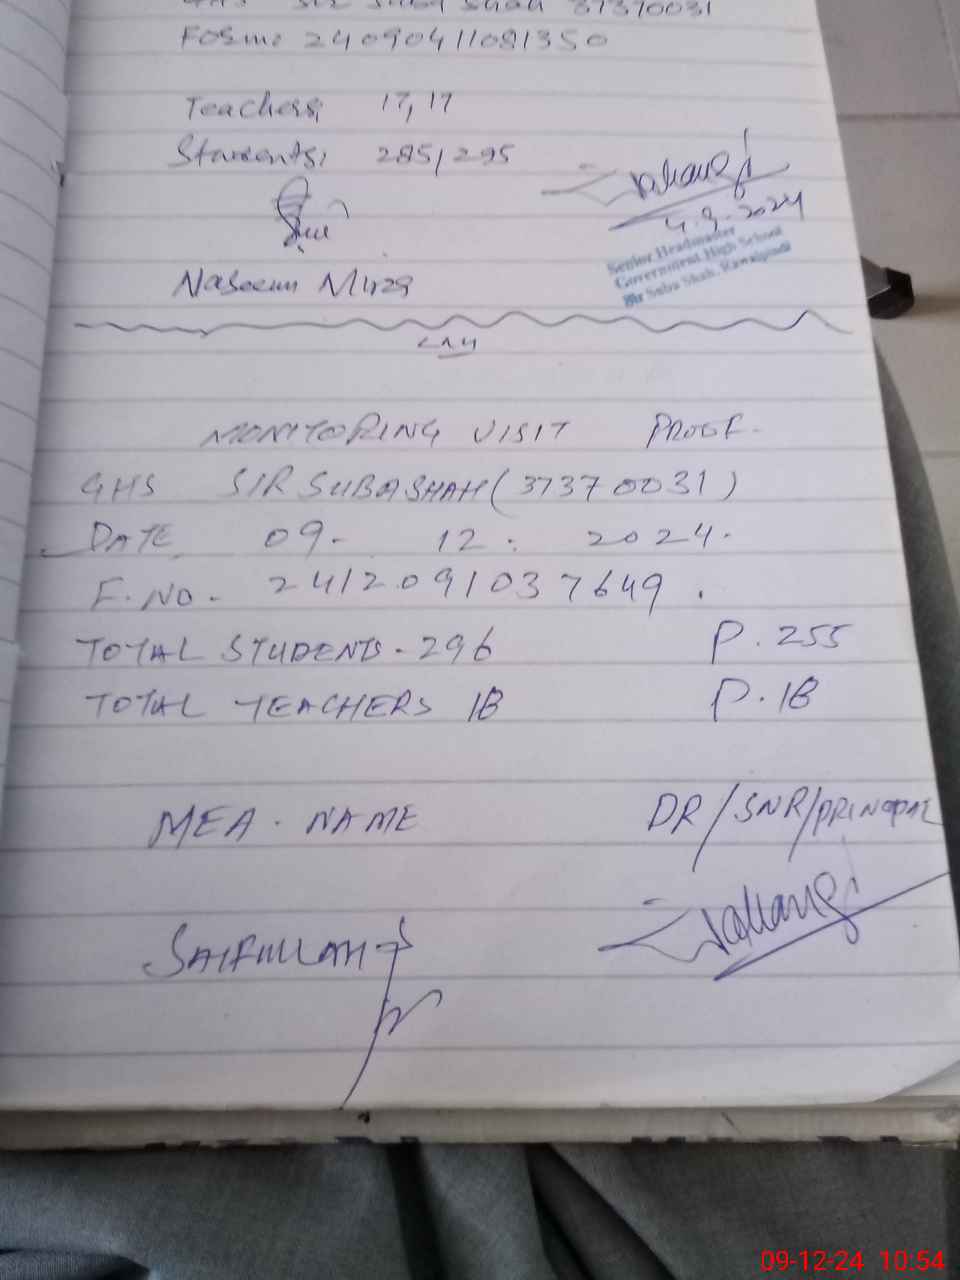 GHS Sir Suba Shah 37370031
FOSmo 24090411081350
Teachers; 17, 17
Students; 285/295
Jahangi
4.9.2024
Senior Headmaster
Government High School
Sir Suba Shah, Rawalpindi
Naseem Mirza
MONITORING VISIT PROOF-
GHS SIR SUBA SHAH (37370031)
DATE 09. 12. 2024.
F.NO. 2412091037649.
TOTAL STUDENTS - 296 P. 255
TOTAL TEACHERS 18 P. 18
MEA. NAME DR/SNR/PRINCIPAL
SAIFULLAH Jahangi
09-12-24 10:54